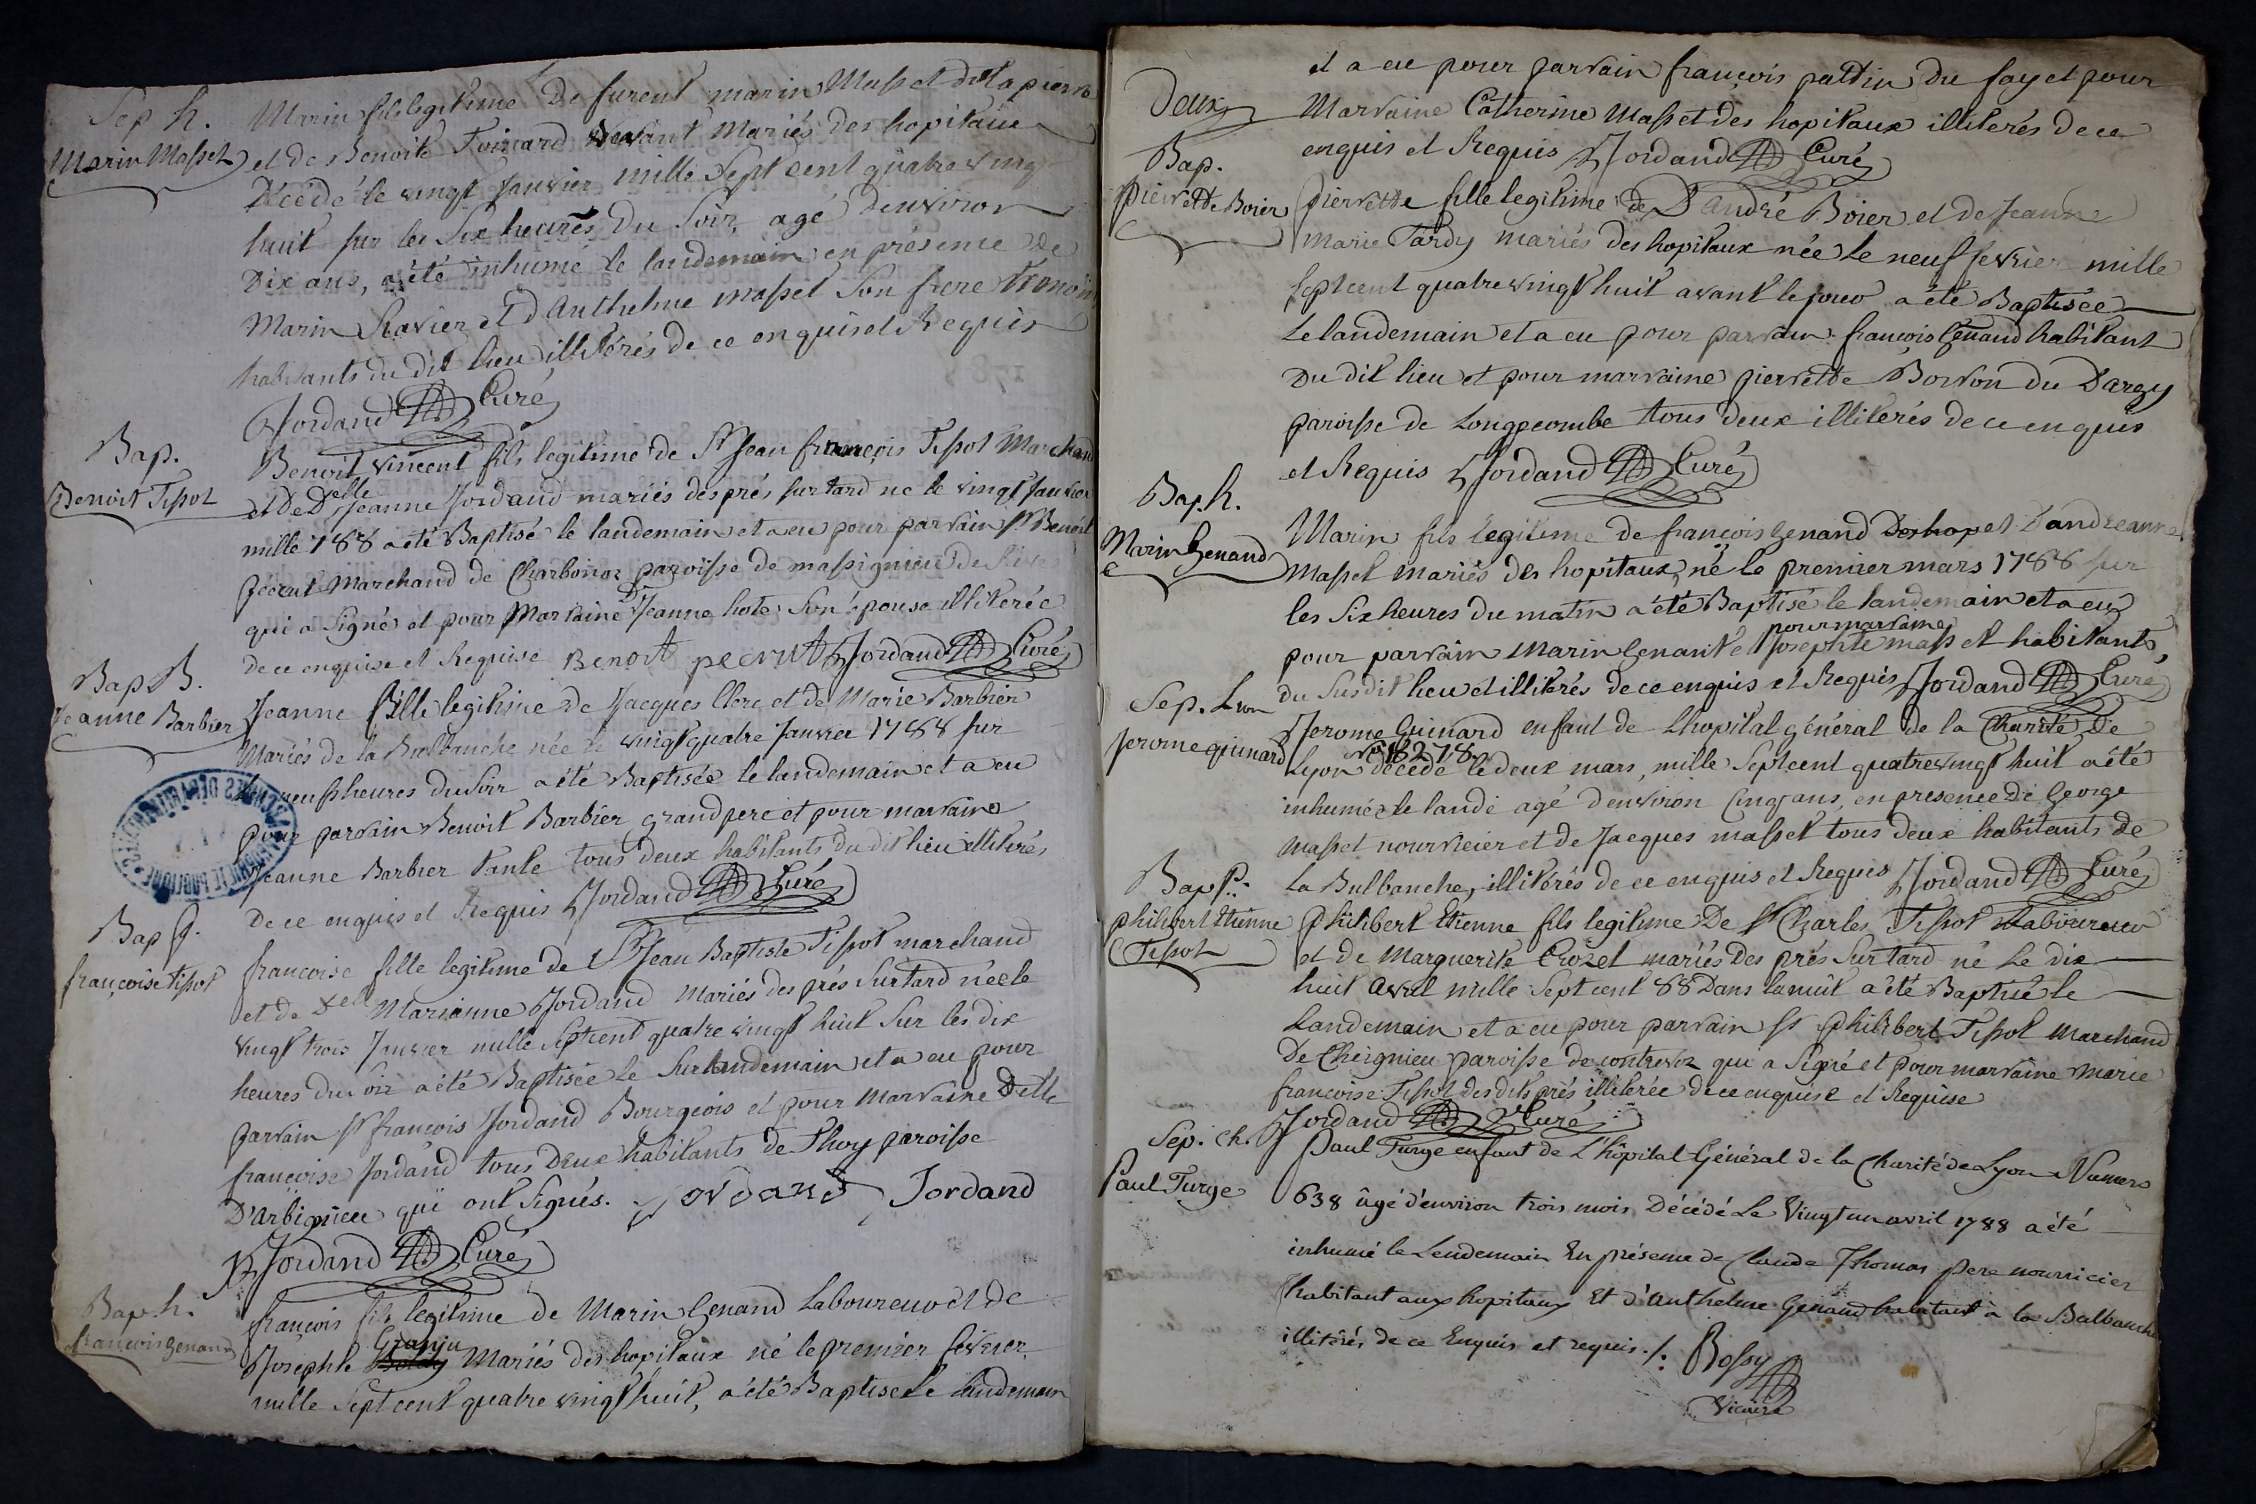 Sep h.
Marin Masset
Marin fils legitime De furent marin Masset dit la pierre
et de Benoite Mariés des hopitaux
Décédé le vingt Janvier mille Sept cent quatre vingt
huit sur les Six heures Du Soir, agé D'environ
Dix ans, a été inhumé le landemain en présence de
Marin Ravier et D'Anthelme masset Son frere
habitants du dit lieu illitérés de ce enquis et Requis
Jordand Curé
Bap.
Benoit Tissot
Benoit Vincent fils legitime de Sr Jean françois Tissot Marchand
et de Delle Jeanne Jordand mariés des prés surtard né le vingt Janvier
mille 788 a été Baptisé le landemain et a eu pour parvain Sr Benoit
pécrut Marchand de Charbonoz paroisse de massignieu de Rives
qui a Signé et pour Marvaine De Jeanne hote Son épouse illiterée
de ce enquise et Requise Benoit pecrut Jordand Curé
Bap B.
Jeanne Barbier
Jeanne fille legitime de Jacques Clerc et de Marie Barbier
Mariés de la Bulbanche née le vingt quatre Janvier 1788 sur
neuf heures du Soir a été Baptisée le landemain et a eu
pour parvain Benoit Barbier grand pere et pour marvaine
Jeanne Barbier tante tous deux habitants du dit lieu illiterés
De ce enquis et Requis Jordand Curé
Bap P.
françoise tissot
françoise fille legitime de Sr Jean Baptiste Tissot marchand
et de Delle Marianne Jordand Mariés des prés Surtard née le
vingt trois Janvier mille Septcent quatre vingt huit Sur les dix
heures du Soir a été Baptisée le Surlandemain et a eu pour
parvain Sr françois Jordand Bourgeois et pour Marvaine Delle
françoise Jordand tous Deux habitants de Thoy paroisse
D'arbignieu qui ont Signés. Jordand Jordand
Jordand Curé
Bap h.
françois genand
françois fils legitime de Marin Genand Laboureur et de
Granju
Josephte Mariés des hopitaux né le premier fevrier
mille Sept cent quatre vingt huit, a été Baptisé le landemain
et a eu pour parvain françois pattin du fay et pour
Deux
Marvaine Catherine Masset des hopitaux illiterés de ce
enquis et Requis Jordand Curé
Bap.
pierrette Boier
pierrette fille legitime de D'andré Boier et de Jeanne
Marie Tardy mariés des hopitaux née le neuf fevrier mille
septcent quatre vingt huit avant le jour a été Baptisée
Le landemain et a eu pour parvain françois Genand habitant
Du dit lieu et pour marvaine pierrette Borron du Dargy
paroisse de Longecombe tous deux illiterés de ce enquis
et Requis Jordand Curé
Bap. h.
Marin Genand
Marin fils legitime de françois Genand Des hop et D'andreanne
Masset mariés des hopitaux, né le premier mars 1788 sur
les Six heures du matin a été Baptisé le landemain et a eu
pour marvaine
pour parvain Marin Genand et Josephte masset habitants
du Susdit lieu et illitérés de ce enquis et Requis Jordand Curé
Sep. Lyon
Jerome guinard
Jerome Guinard enfant de L'hopital général de la Charité De
No 18278
Lyon décédé le deux mars, mille Septcent quatrevingt huit a été
inhumé le landé agé d'environ Cinq ans, en presence De George
Masset nourricier et de Jacques masset tous deux habitants de
La Bulbanche, illitérés de ce enquis et Requis Jordand Curé
Bap P.
philibert Etienne
Tissot
Philibert Etienne fils legitime De Sr Charles Tissot Laboureur
et de Marguerite Crozet mariés Des prés Surtard né Le dix
huit Avril mille Sept cent 88 Dans la nuit a été Baptisé le
Landemain et a eu pour parvain Sr Philibert Tissot Marchand
De Cheignieu paroisse de contrevoz qui a Signé et pour marvaine Marie
françoise Tissot des dits prés illiterée de ce enquise et Requise
Jordand Curé
Sep. ch.
Paul Turge
Paul Turge enfant de L'hôpital Général de la Charité de Lyon Numero
638 âgé d'environ trois mois Décédé Le Vingt un avril 1788 a été
inhumé le Lendemain En présence de Claude Thomas pere nourricier
habitant aux hopitaux Et d'Anthelme Genand habitant a la Balbanche
illitérés de ce Enquis et requis ./. Bossy
Vicaire